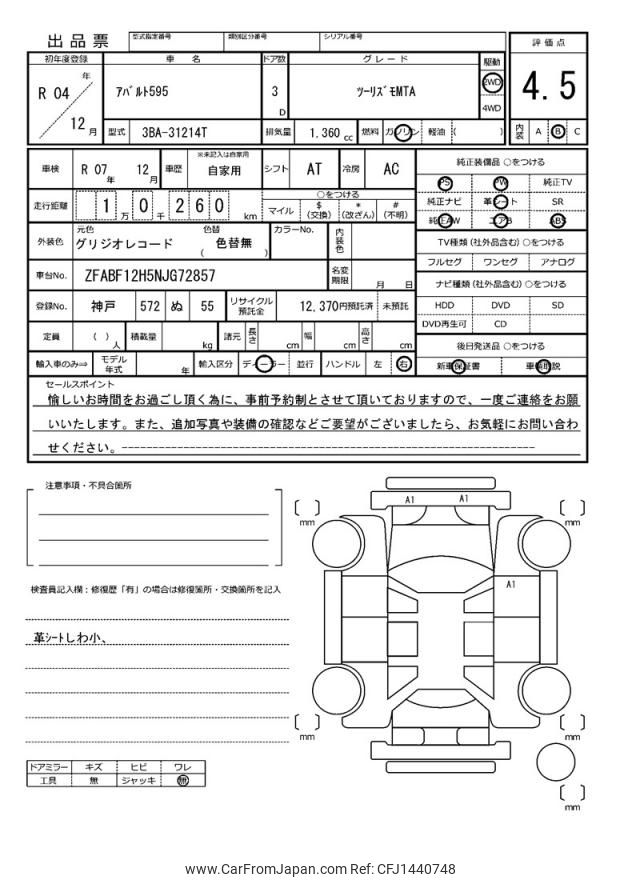 出品票
型式指定番号 類別区分番号 シリアル番号
評価点
4.5
内装 A B C
初年度登録 車名 ドア数 グレード 駆動
R 04 年 12 月
アバルト595
3 D
ツーリズモMTA
2WD
4WD
型式 3BA-31214T 排気量 1,360 cc 燃料 ガソリン 軽油 ( )
車検 R 07 年 12 月 車歴 ※未記入は自家用 自家用 シフト AT 冷房 AC
走行距離 1 万 0 千 2 6 0 km
○をつける
マイル $ (交換) * (改ざん) # (不明)
外装色 元色 グリジオレコード 色替 色替無 ( ) カラーNo. 内装色
車台No. ZFABF12H5NJG72857 名変期限 月 日
登録No. 神戸 572 ぬ 55 リサイクル預託金 12,370円預託済 未預託
定員 ( ) 人 積載量 kg 諸元 長さ cm 幅 cm 高さ cm
輸入車のみ⇒ モデル年式 年 輸入区分 ディーラー 並行 ハンドル 左 右
純正装備品 ○をつける
PS PW 純正TV
純正ナビ 革シート SR
純正AW エアB ABS
TV種類(社外品含む)○をつける
フルセグ ワンセグ アナログ
ナビ種類(社外品含む)○をつける
HDD DVD SD
DVD再生可 CD
後日発送品 ○をつける
新車保証書 車輌取説
セールスポイント
愉しいお時間をお過ごし頂く為に、事前予約制とさせて頂いておりますので、一度ご連絡をお願
いいたします。また、追加写真や装備の確認などご要望がございましたら、お気軽にお問い合わ
せください。
注意事項・不具合箇所
検査員記入欄:修復歴「有」の場合は修復箇所・交換箇所を記入
革シートしわ小、
ドアミラー キズ ヒビ ワレ
工具 無 ジャッキ 無
A1 A1
A1
mm mm
mm mm
mm
www.CarFromJapan.com Ref: CFJ1440748